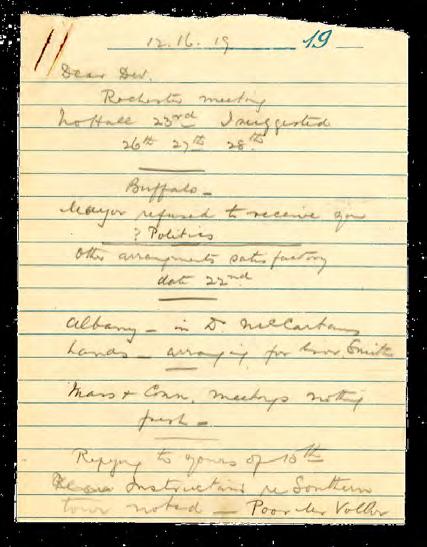 11
12.16.19
19
Dear Dev.
Rochester meeting
No Hall 23rd I suggested
26th 27th 28th
Buffalo -
Mayor refused to receive you
? Politics
Other arrangements satisfactory
date 22nd
Albany - in Dr McCartans
hands - arranging for Gov. Smith
Mass & Conn. meetings nothing
fresh -
Replying to yours of 15th
Instructions re Southern
tour noted - Poor